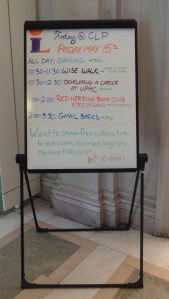 Friday @ CLP
FRIDAY, MAY 15th
ALL DAY: GAMING
10:30-11:30: WISE WALK
10:30-2:30: DEVELOPING A CAREER
AT UPMC
1:00-2:00: RED HERRING BOOK CLUB
GMAIL BASICS
Want to share free videos, listen
to audiobooks, download songs you
can keep FOREVER?